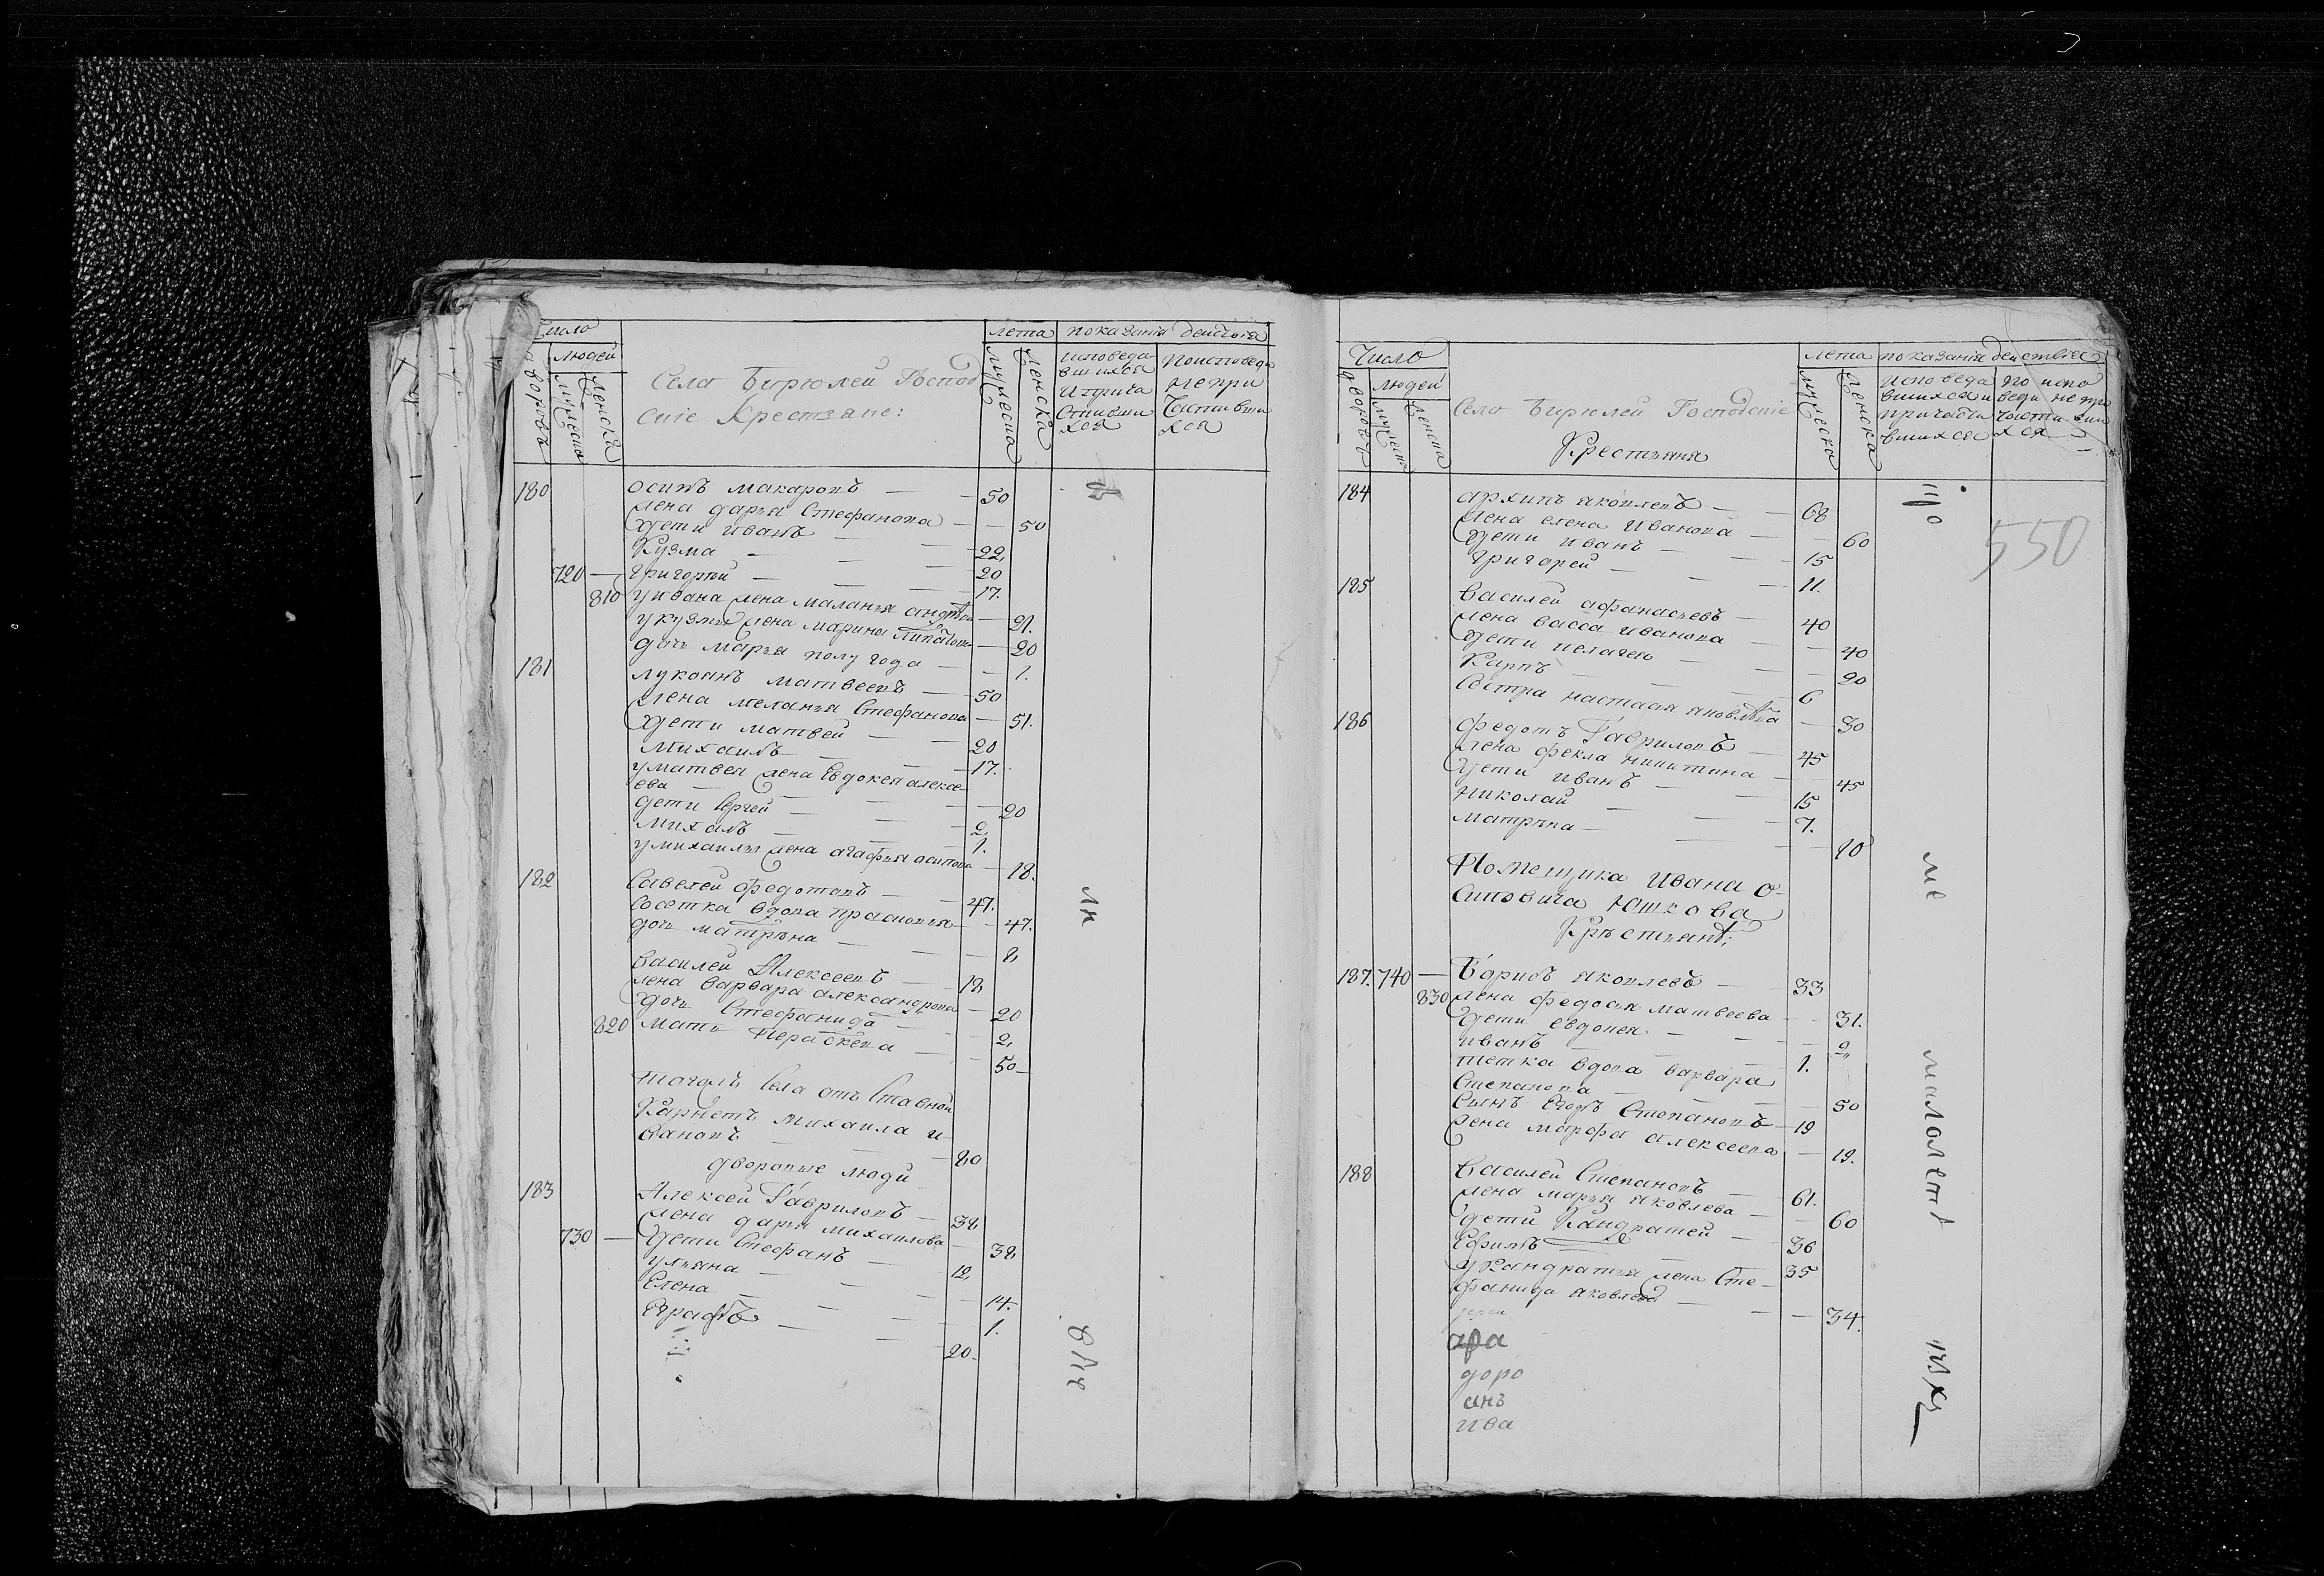 Число
людей
дворовъ
мужеска
женска
Села Бирюлей Господ
ские Крестьяне:
лета
мужеска
женска
показания действия
исповеда
вшихся
и прича
стивши
хся
по исповеди
не при
частивши
хся
180 осипъ макаровъ — 50
жена дарья Стефанова — 50
дети иванъ — 22
Кузма — 20
720 — григорей — 17.
810 у ивана жена маланья — 21.
у кузмы жена марина — 20
дочь марья полу года — 1.
181 лукоянъ матвеевъ — 50
жена меланья Стефанова — 51.
дети матвей — 20
михаилъ — 17.
у матвея жена Евдокея алексе-
ева — 20
дети Сергей — 2,
михаилъ — 1.
у михаилы жена агафья осипова — 18.
182 Савелей федотовъ — 47.
вдова — 47.
дочь матрена — 8,
василей Алексеевъ — 18
жена варвара александрова — 20
дочь Стефанида — 2,
820 мать Параскева — 50
тогожъ села отъ Ставной
Карнетъ михаила и-
вановъ — 80
дворовые люди
183 Алексей Гавриловъ — 38
жена дарья михаилова — 38
730 — дети Стефанъ — 12,
ульяна — 14.
Елена — 1.
20.
Число
людей
дворовъ
мужеска
женска
Села Бирюлей Господские
Крестьяня
лета
мужеска
женска
показания действия
исповеда
вшихся и
причасти
вшихся
по испо
веди не при
частивши
хся
550
184 архипъ яковлевъ — 68
жена елена иванова — 60
дети иванъ — 15
григорей — 11.
185 василей афанасьевъ — 40
жена васса иванова — 40
дети пелагея — 20
Карпъ — 6
Сестра настасья яковлева — 30
186 федотъ Гавриловъ — 45
жена фекла никитина — 45
дети иванъ — 15
николай — 7.
матрена — 10
Помещика ивана о-
сиповича Юшкова
Крестьяне:
187. 740 — Борисъ яковлевъ — 33
830 жена федосья матвеева — 31.
дети евдокея — 2,
иванъ — 1.
тетка вдова варвара
Степанова — 50
Сынъ Егоръ Степановъ — 19
жена марфа алексеева — 19.
188 василей Степановъ — 61.
жена марья яковлева — 60
дети Кандратей — 36
Ефимъ — 35
у Кандратья жена Сте-
фанида яковлева — 34.
ара
доро
анъ
ива
малолет